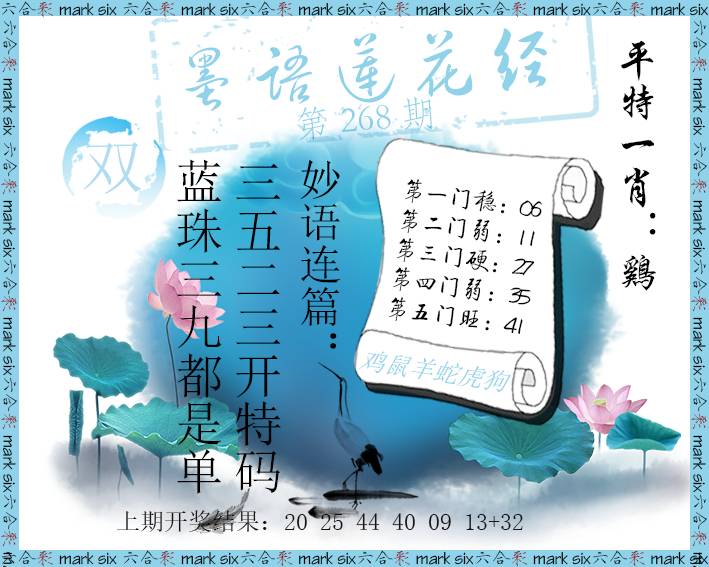 六合彩 mark six 六合彩 mark six 六合彩 mark six 六合彩 mark six 六合彩 mark six
墨语莲花经
第 268 期
双
平特一肖：鷄
妙语连篇：
三五二三开特码
蓝珠三九都是单
第一门稳：06
第二门弱：11
第三门硬：27
第四门弱：35
第五门旺：41
鸡鼠羊蛇虎狗
上期开奖结果：20 25 44 40 09 13+32
六合彩 mark six 六合彩 mark six 六合彩 mark six 六合彩 mark six 六合彩 mark six